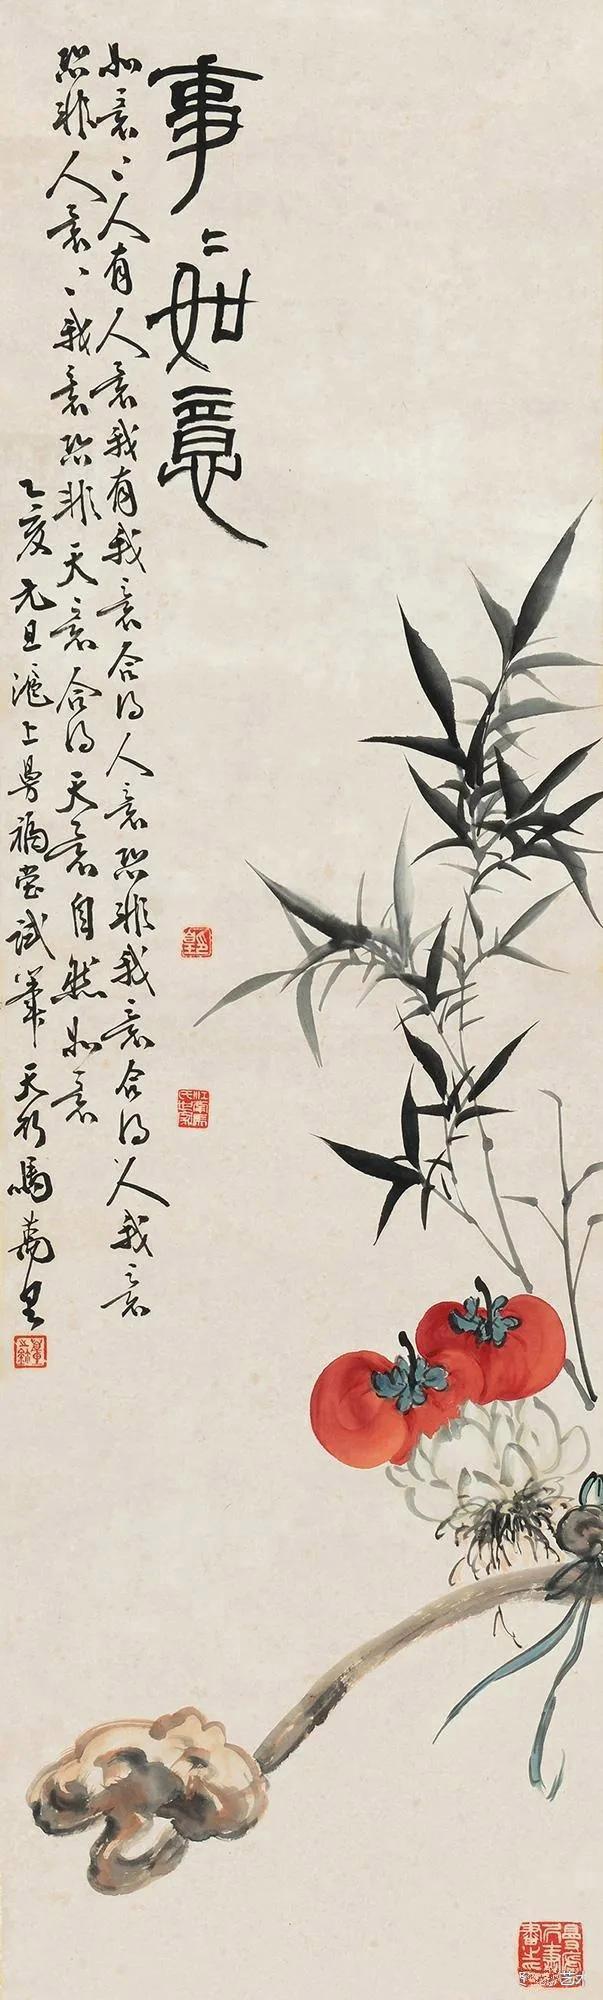 事〻如意
如意〻〻人有人意我有我意合得人意恐非我意合得人我意
恐非人意〻〻我意恐非天意合得天意自然如意
乙亥元旦滬上曼福堂試筆天行馬萬里